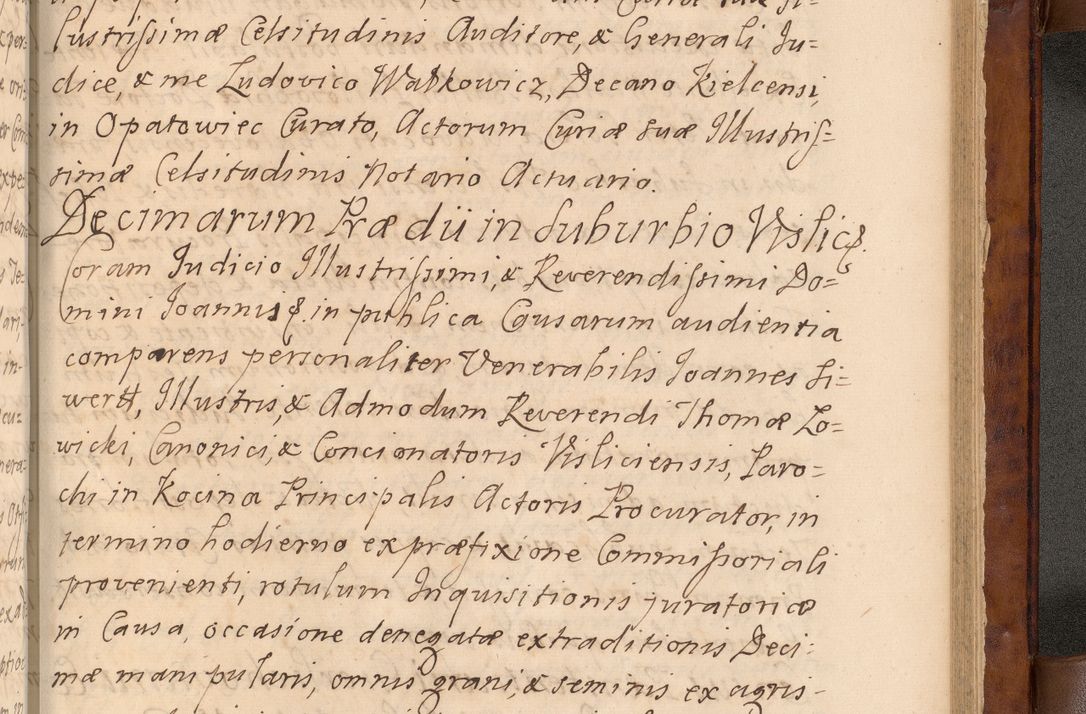 lustrißimæ Celsitudinis Auditore, & Generali Ju=
dice, & me Ludovico Watkowicz, Decano Kielcensi,
in Opatowiec Curato, Actorum Curiæ suæ Illustriß=
simæ Celsitudinis Notario Actuario.
Decimarum Prædii in Suburbio Vislic&.
Coram Judicio Illustrißimi, & Reverendißimi Do=
mini Joannis &. in publica Causarum audientia
comparens personaliter Venerabilis Joannes Si=
wertt, Illustris, & Admodum Reverendi Thomæ Lo=
wicki, Canonici, & Concionatoris Visliciensis, Paro=
chi in Kocina Principalis Actoris Procurator, in
termino hodierno ex præfixione Commißoriali
provenienti, rotulum Inquisitionis juratoriæ
in Causa, occasione denegatæ extraditionis Deci=
mæ manipularis, omnis grani, & seminis ex agris-